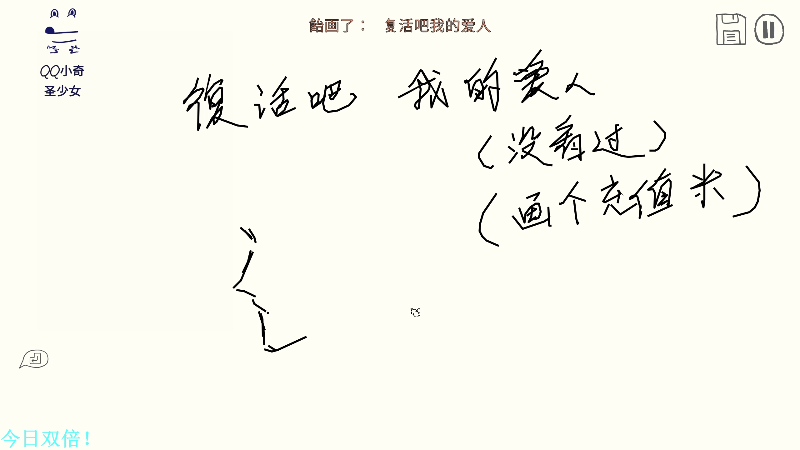 飴画了： 复活吧我的爱人
QQ小奇
圣少女
復话吧 我的爱人
(没看过)
(画个充值米)
今日双倍！